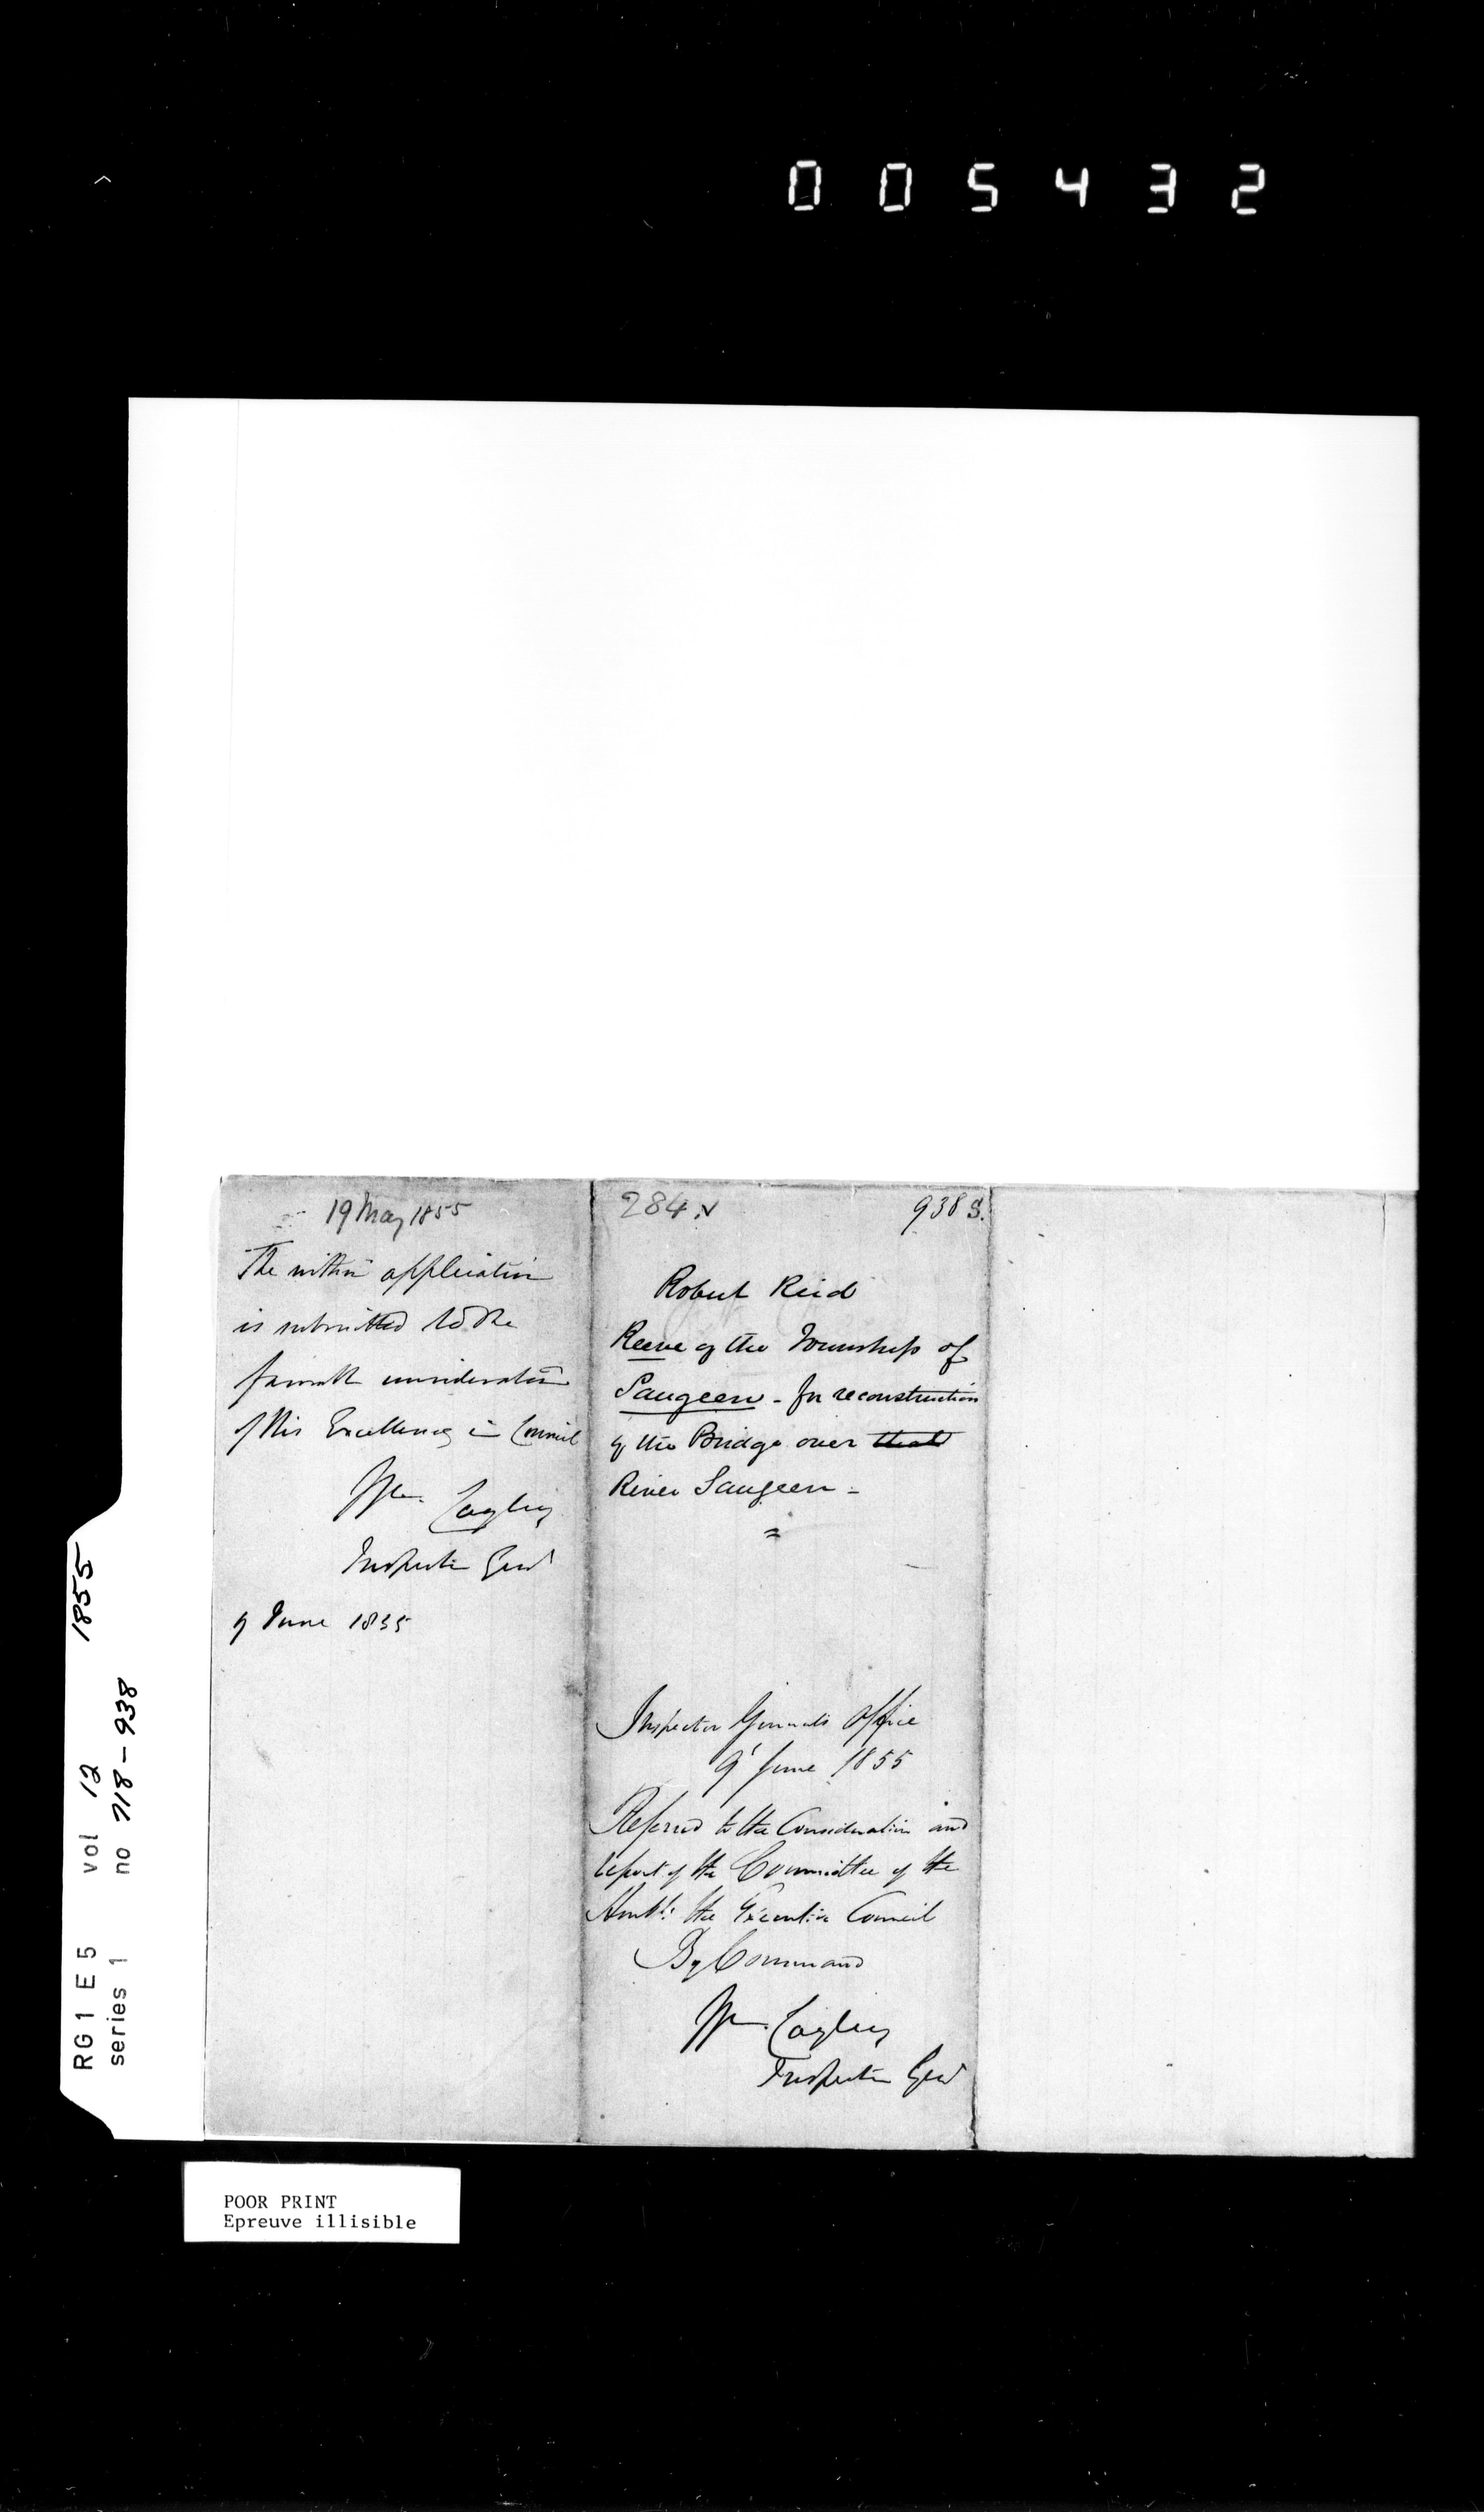 005432
19 May 1855
The within application
is submitted to the
favorable consideration
of His Excellency in Council
Wm. Cayley
Inspector Genl
9 June 1855
284
938 S.
Robert Reid
Reeve of the Township of
Saugeen - for reconstruction
of the Bridge over that
River Saugeen -
Inspector General's Office
9 June 1855
Referred to the Consideration and
report of the Committee of the
Honble: the Executive Council
By Command
Wm. Cayley
Inspector Genl
RG1 E5 vol 12 1855
series 1 no 718-938
POOR PRINT
Epreuve illisible